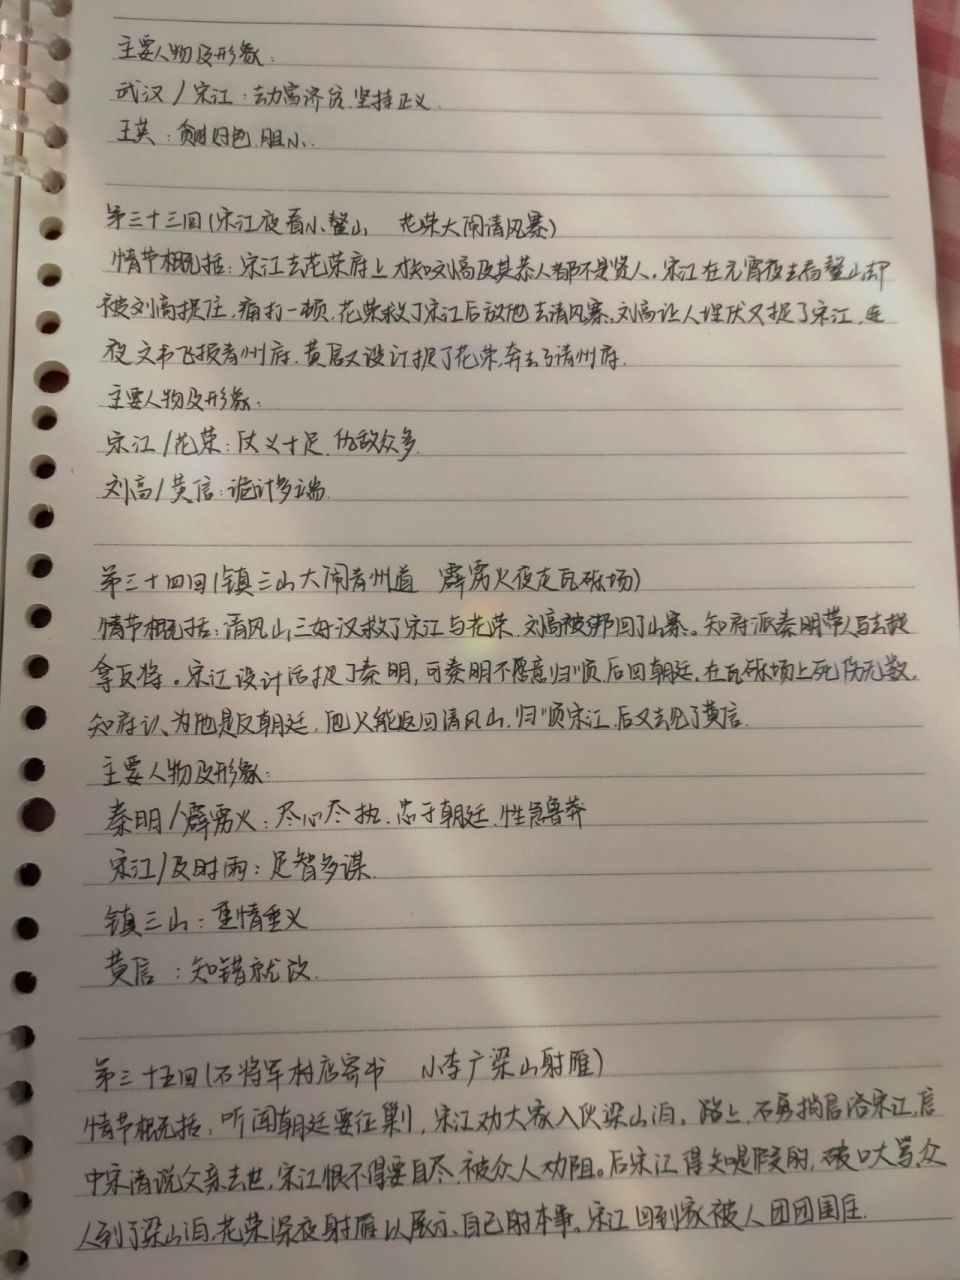 主要人物及形象：
武汉/宋江：劫富济贫.坚持正义.
王英：贪财好色.胆小.
第三十三回(宋江夜看小鳌山 花荣大闹清风寨)
情节概括：宋江去花荣府上才知刘高及其恭人都不是贤人.宋江在元宵夜去看鳌山却
被刘高捉住,痛打一顿,花荣救了宋江后放他去清风寨,刘高让人埋伏又捉了宋江,连
夜文书飞报青州府.黄信又设计捉了花荣,奔去了青州府.
主要人物及形象：
宋江/花荣：仗义十足.仇敌众多.
刘高/黄信：诡计多端.
第三十四回(镇三山大闹青州道 霹雳火夜走瓦砾场)
情节概括：清风山三好汉救了宋江与花荣.刘高被绑回了山寨。知府派秦明带人马去捉
拿反将。宋江设计活捉了秦明,可秦明不愿意归顺,后回朝廷,在瓦砾场上死伤无数.
知府认为他是反朝廷,他只能返回清风山,归顺宋江,后又去见了黄信.
主要人物及形象：
秦明/霹雳火：尽心尽职.忠于朝廷.性急鲁莽
宋江/及时雨：足智多谋.
镇三山：重情重义
黄信：知错就改.
第三十五回(石将军村店寄书 小李广梁山射雁)
情节概括：听闻朝廷要征剿,宋江劝大家入伙梁山泊。路上,石勇捎信给宋江,信
中宋清说父亲去世,宋江恨不得要自尽,被众人劝阻。后宋江得知是假的,破口大骂,众
人到了梁山泊,花荣深夜射雁以展示自己的本事。宋江回到家被人团团围住.